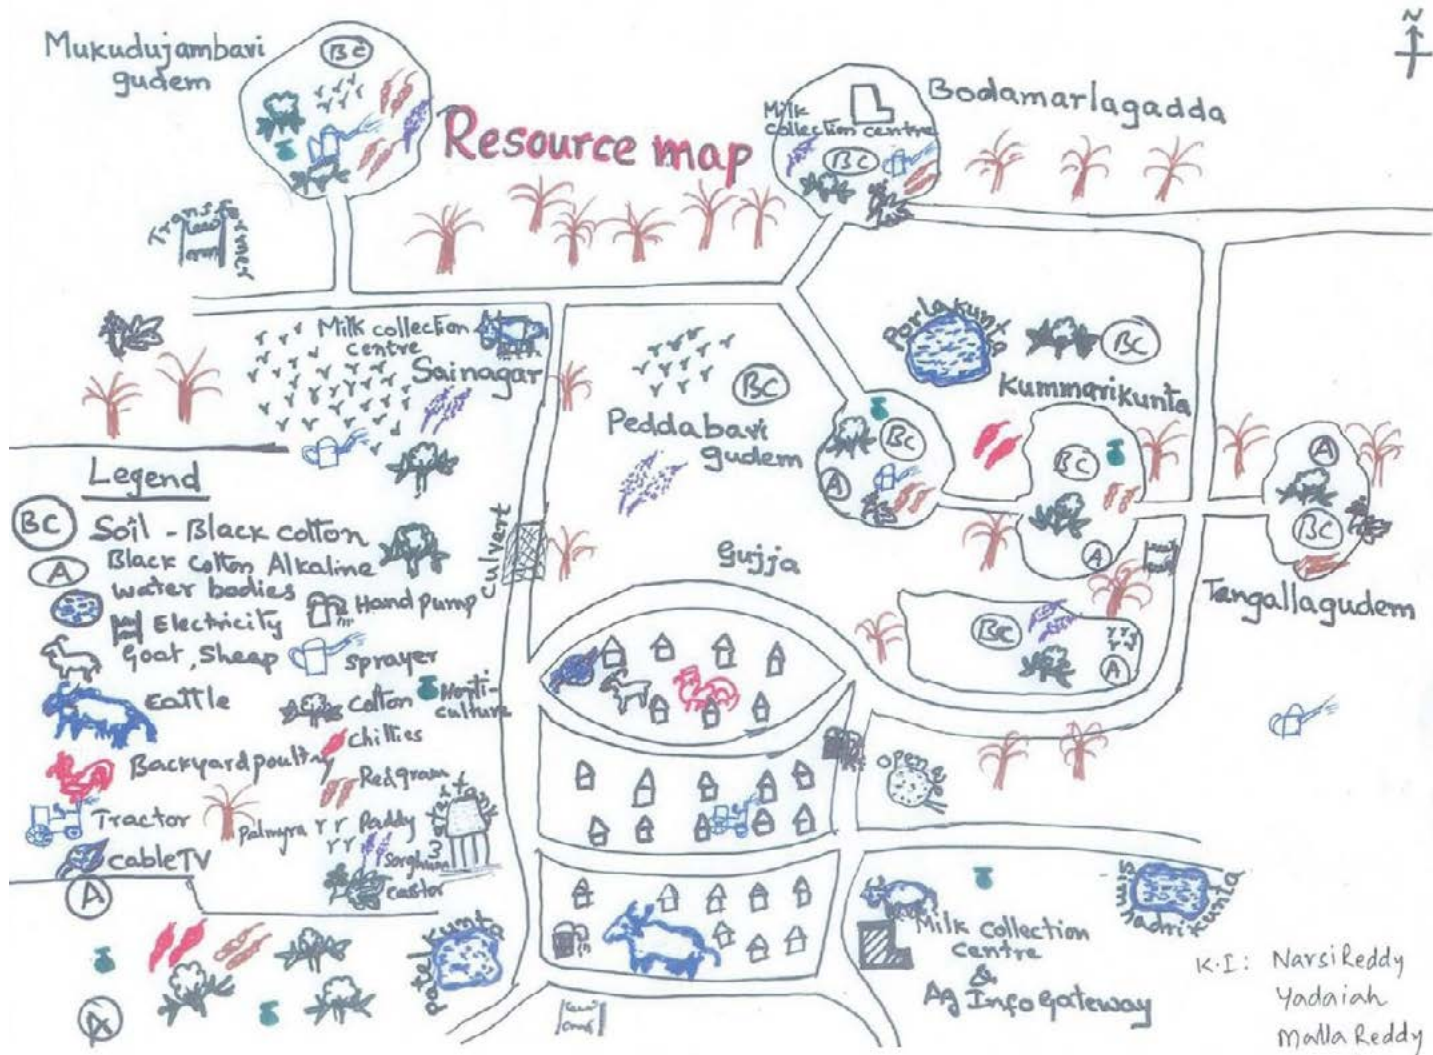 N
Mukudujambavi
gudem
BC
Resource map
Milk
collection centre
BC
Bodamarlagadda
Transformer
Milk collection
centre
Sainagar
Porlakunta
BC
Kummarikunta
BC
Peddabavi
gudem
BC
A
BC
A
A
BC
Tangallagudem
culvert
Gujja
BC
A
Legend
BC Soil - Black cotton
A Black Cotton Alkaline
water bodies
Hand pump
Electricity
Goat, Sheap
sprayer
Cattle
Cotton
Horti-
culture
Backyard poultry
chillies
Redgram
Tractor
Palmyra
Paddy
Sorghum
cable TV
castor
A
A
Patel kunta
open
Milk collection
centre
&
Ag Info Gateway
K.I: Narsi Reddy
Yadaiah
Malla Reddy